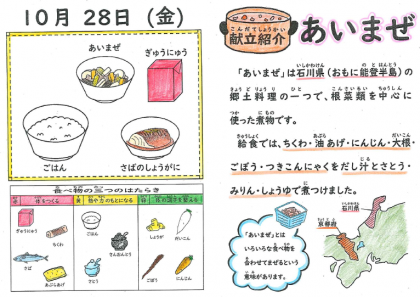 10月 28日 (金)
あいまぜ
ぎゅうにゅう
ごはん
さばのしょうがに
食べ物の三つのはたらき
ぎゅうにゅう
ちくわ
さば
あぶらあげ
ごはん
さとう
しょうが
だいこん
ごぼう
にんじん
こんだてしょうかい
献立紹介
あいまぜ
「あいまぜ」は石川県(おもに能登半島)の
郷土料理の一つで、根菜類を中心に
使った煮物です。
給食では、ちくわ・油あげ・にんじん・大根・
ごぼう・つきこんにゃくをだし汁とさとう・
みりん・しょうゆで煮つけました。
「あいまぜ」とは
いろいろな食べ物を
合わせてまぜるという
意味があります。
石川県
京都府